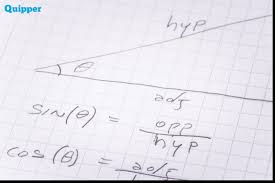 Quipper
hyp
θ
adj
sin(θ) = opp
hyp
cos(θ) = adj